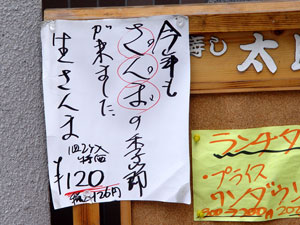 今年も
さんまの季節
が来ました。
生さんま
1皿2入
特価
¥120
税込126円
寿し 太
ランチタ
・プライス
ワンダウン